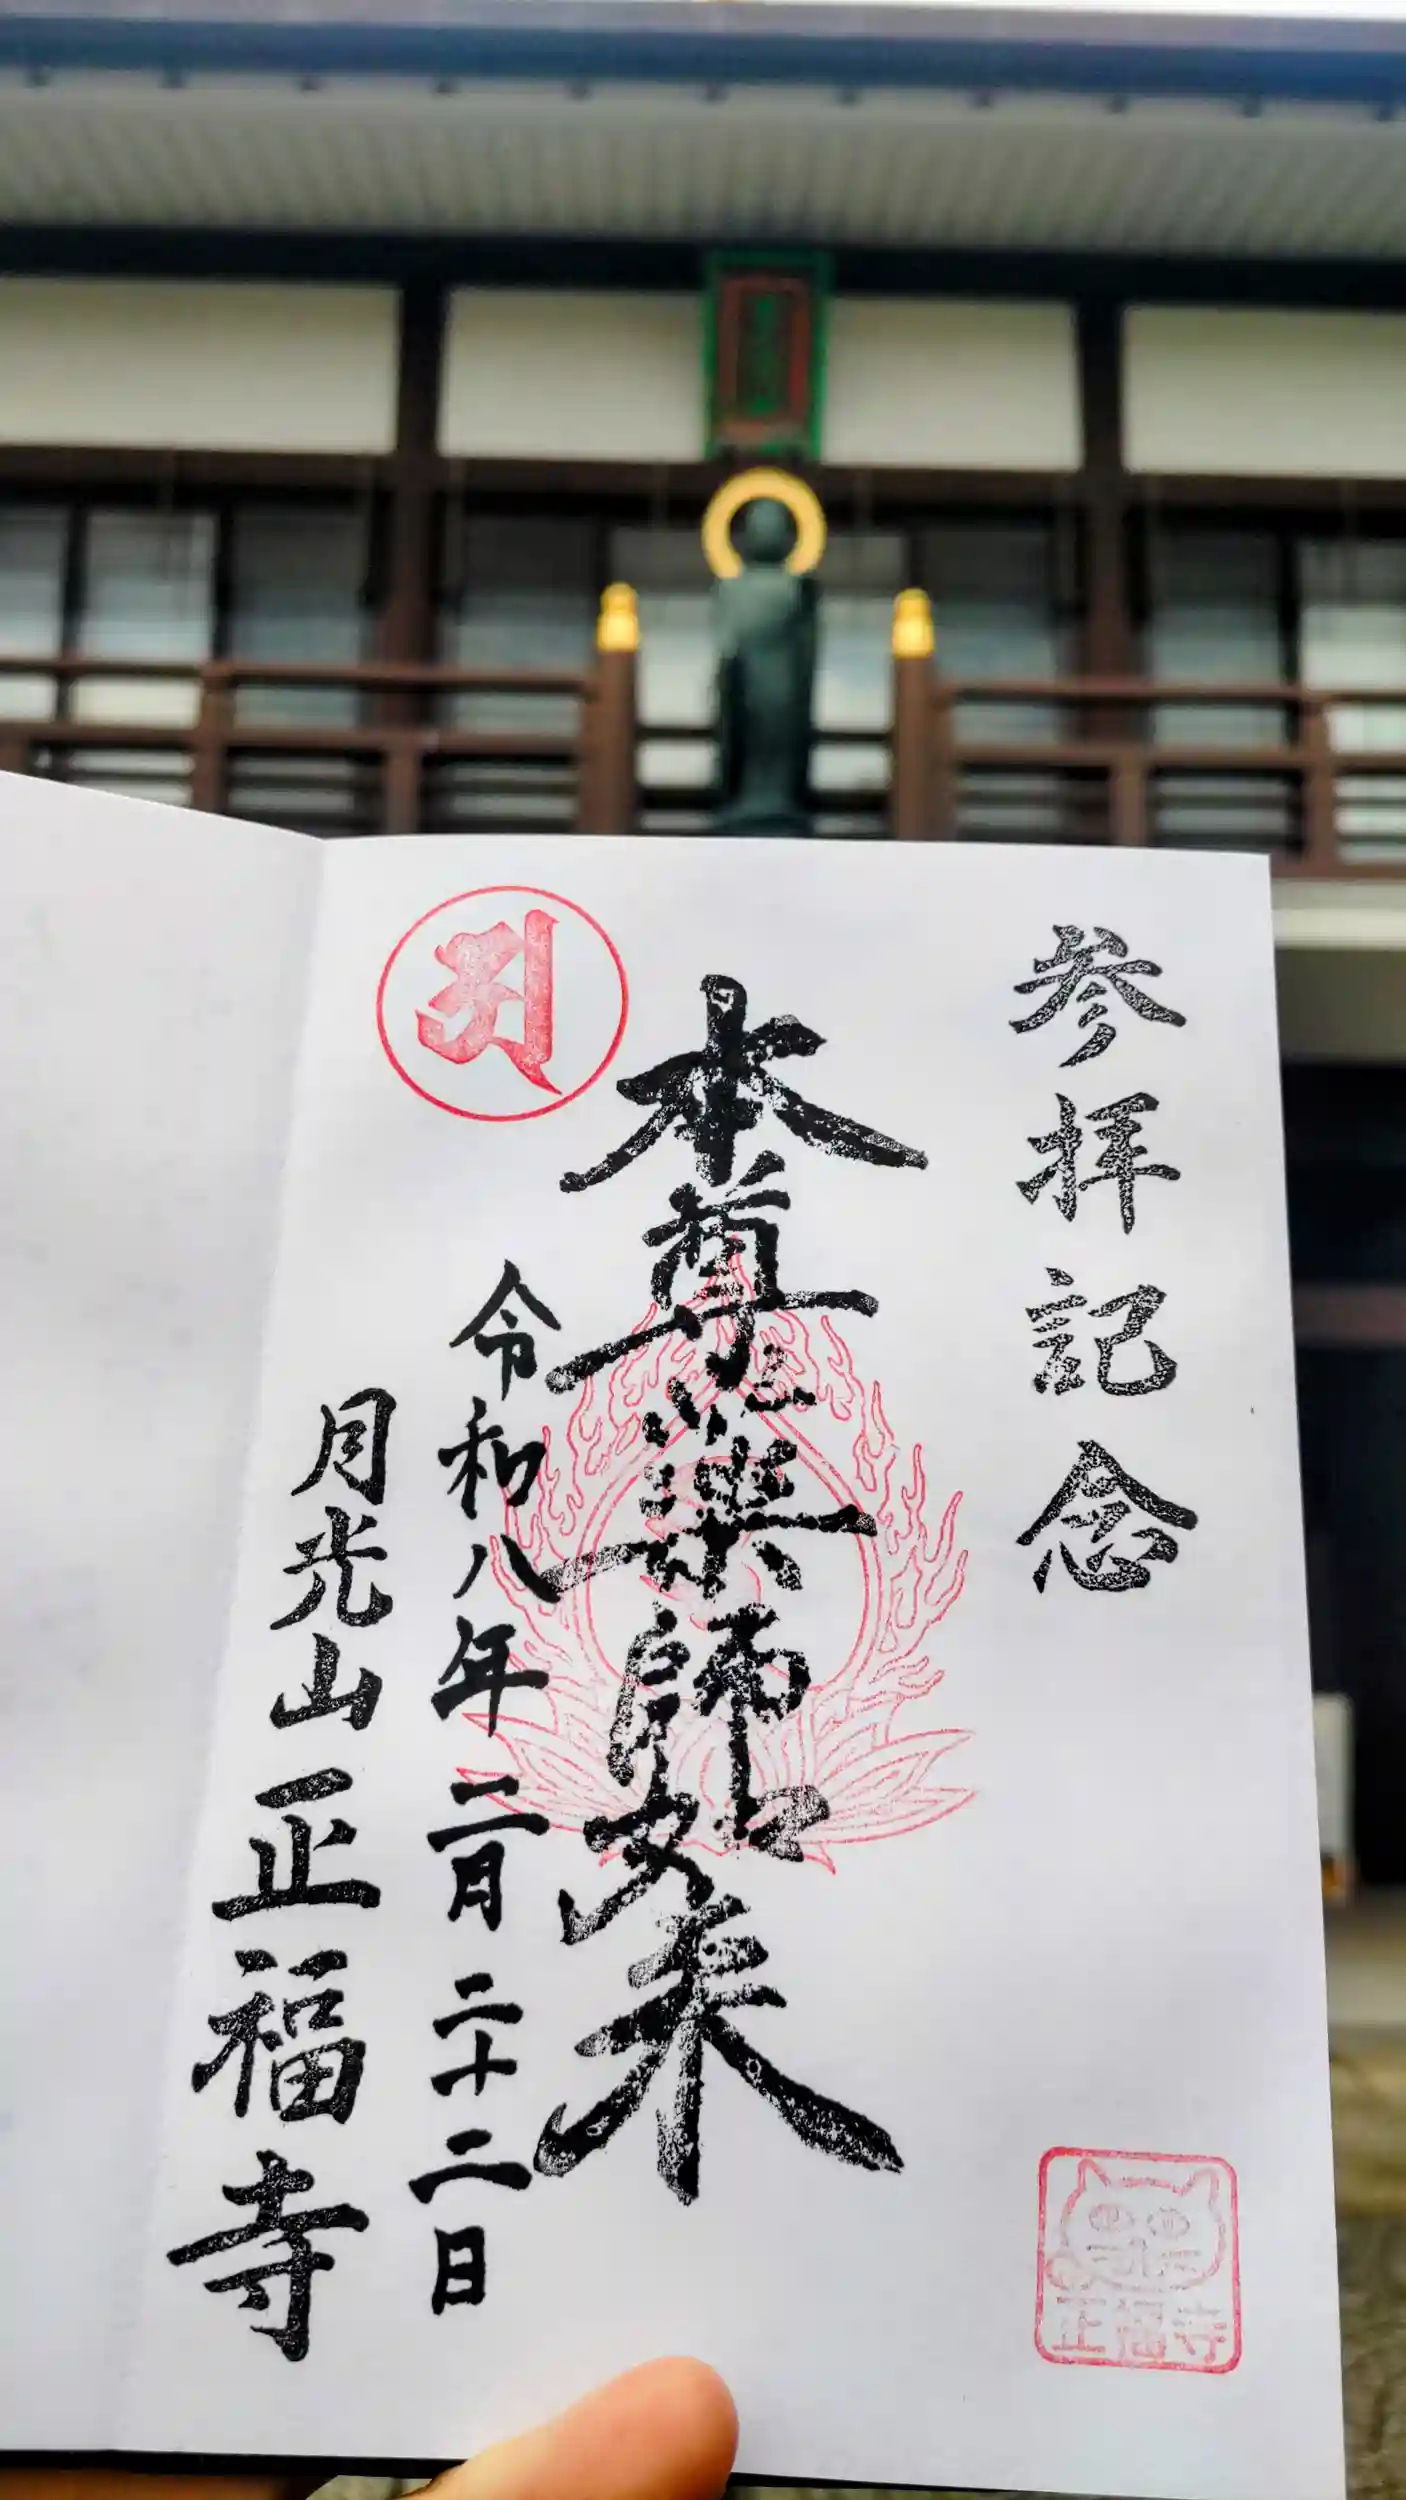 参拝記念
本尊薬師如来
令和八年二月二十二日
月光山正福寺
正福寺